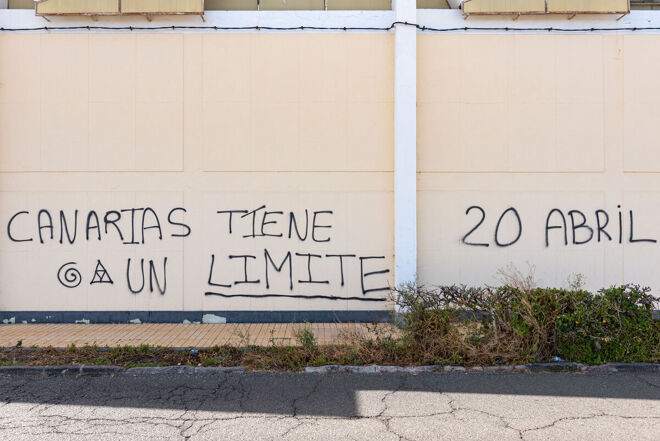 CANARIAS TIENE
UN LIMITE
20 ABRIL